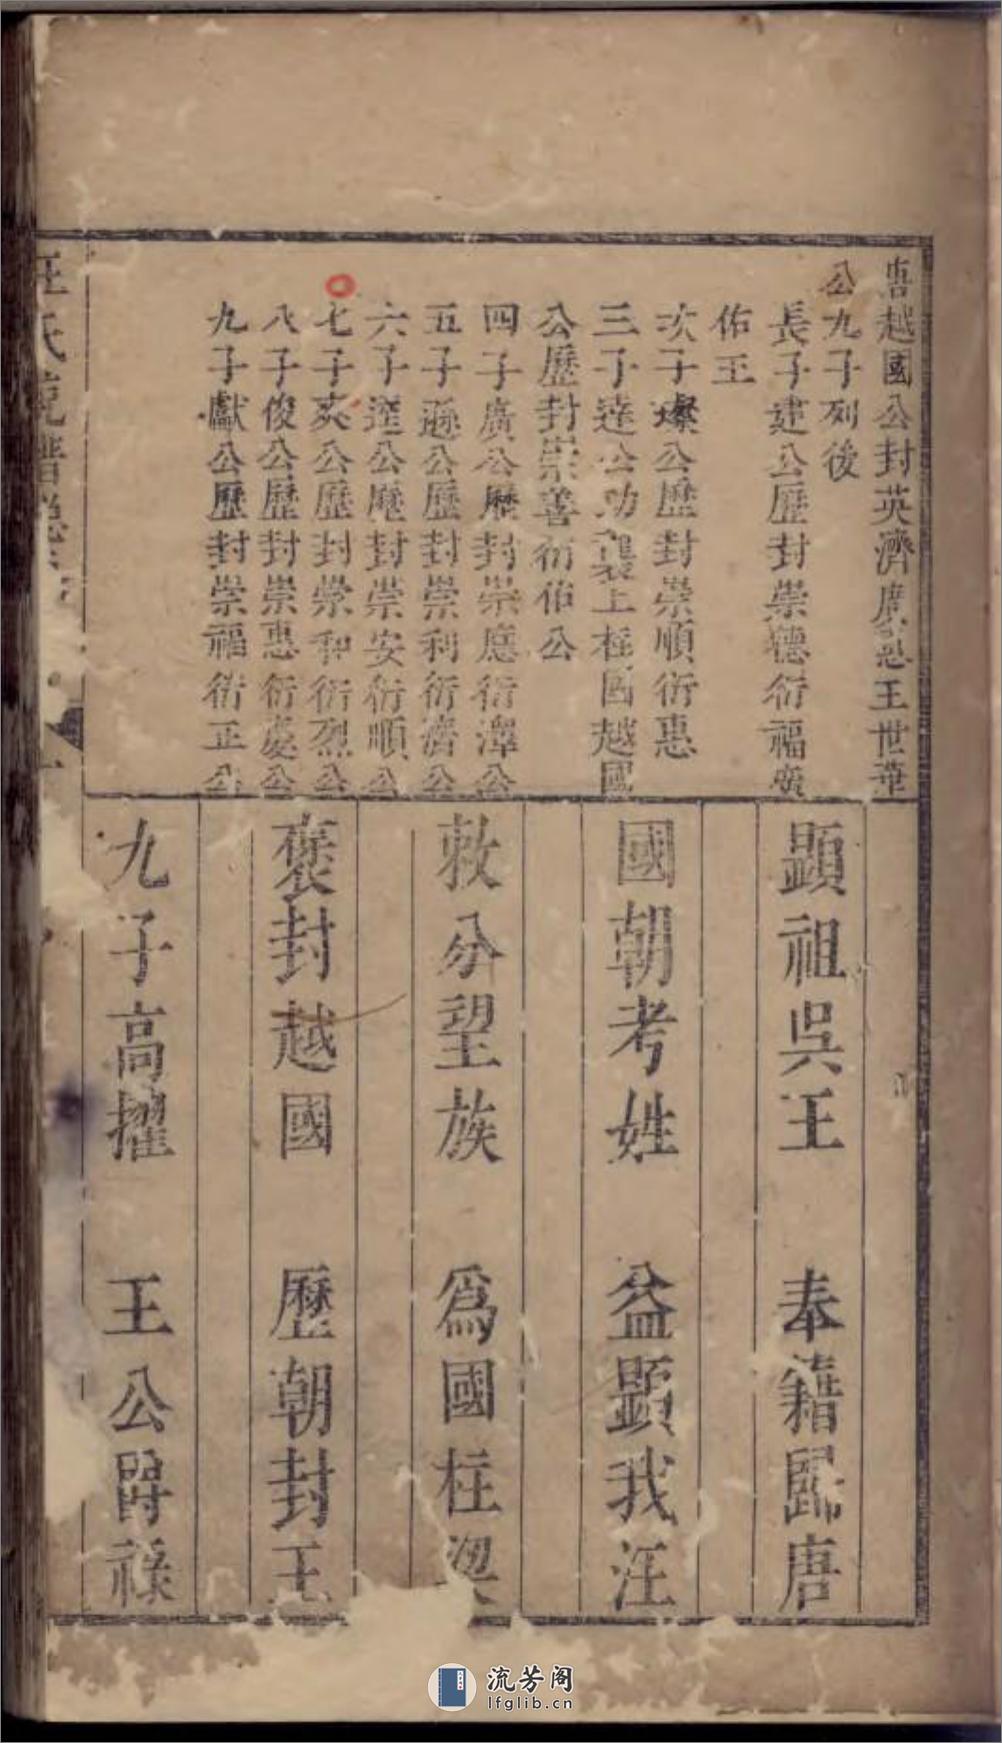 唐越國公封英濟廣惠王世華
公九子列後
長子建公歷封崇德衍福廣
佑王
次子璨公歷封崇順衍惠
三子達公功襲上柱國越國
公歷封崇善衍佑公
四子廣公歷封崇應衍澤公
五子遜公歷封崇利衍濟公
六子逵公歷封崇安衍順公
七子爽公歷封崇和衍烈公
八子俊公歷封崇惠衍慶公
九子獻公歷封崇福衍正公
顯祖吳王 奉籍歸唐
國朝考姓 益顯我汪
敕分望族 為國柱梁
褒封越國 歷朝封王
九子高擢 王公爵祿
汪氏統譜
流芳阁
lfglib.cn